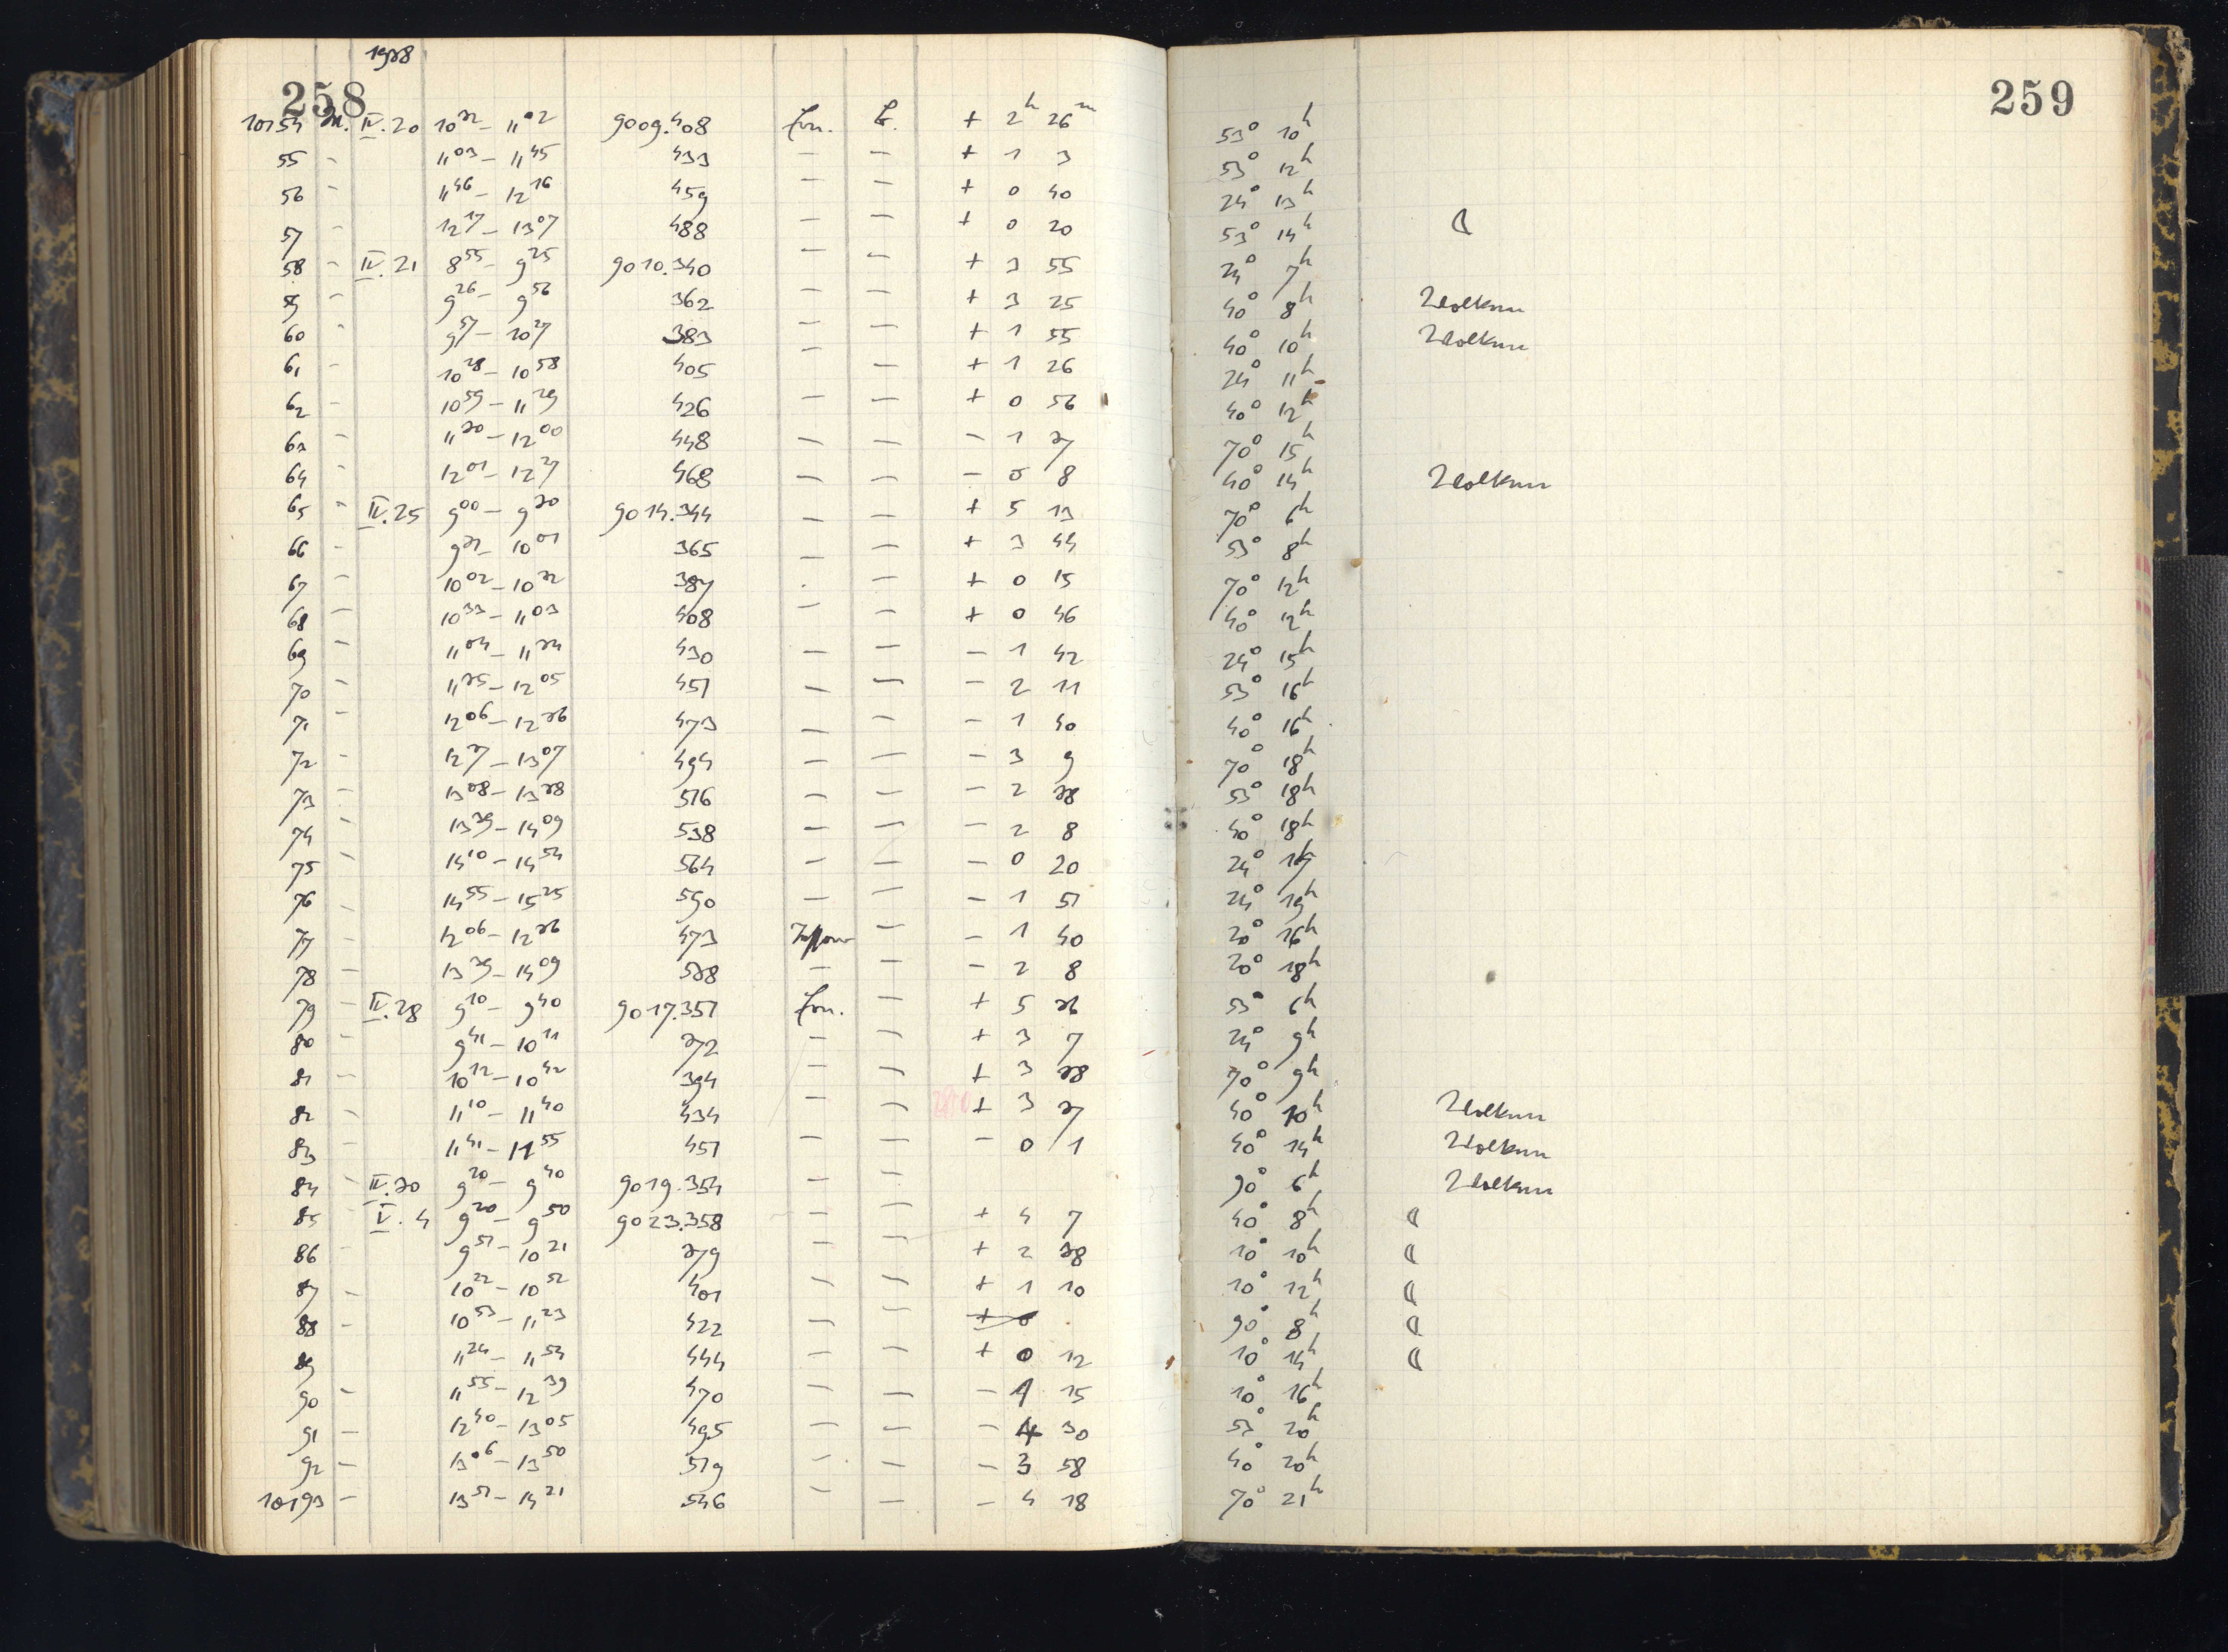 258
1938
259
10154 IV.20 10³² – 11⁰² 9009.408 Ern. + 2ʰ 26ᵐ 53° 10ʰ
55 – 11⁰³ – 11⁴⁵ 433 – – + 1 3 53° 12ʰ
56 – 11⁴⁶ – 12¹⁶ 459 – – + 0 40 24° 13ʰ
57 – 12¹⁷ – 13⁰⁷ 488 – – + 0 20 53° 14ʰ ☾
58 – IV.21 8⁵⁵ – 9²⁵ 9010.340 – – + 3 55 24° 7ʰ
59 – 9²⁶ – 9⁵⁶ 362 – – + 3 25 40° 8ʰ Wolken
60 – 9⁵⁷ – 10²⁷ 383 – – + 1 55 40° 10ʰ Wolken
61 – 10²⁸ – 10⁵⁸ 405 – – + 1 26 24° 11ʰ
62 – 10⁵⁹ – 11²⁹ 426 – – + 0 56 40° 12ʰ
63 – 11³⁰ – 12⁰⁰ 448 – – – 1 37 70° 15ʰ
64 – 12⁰¹ – 12²⁷ 468 – – – 0 8 40° 14ʰ Wolken
65 – IV.25 9⁰⁰ – 9³⁰ 9014.344 – – + 5 13 70° 6ʰ
66 – 9³¹ – 10⁰¹ 365 – – + 3 44 53° 8ʰ
67 – 10⁰² – 10³² 387 – – + 0 15 70° 12ʰ
68 – 10³³ – 11⁰³ 408 – – + 0 46 40° 12ʰ
69 – 11⁰⁴ – 11³⁴ 430 – – – 1 42 24° 15ʰ
70 – 11³⁵ – 12⁰⁵ 451 – – – 2 11 53° 16ʰ
71 – 12⁰⁶ – 12³⁶ 473 – – – 1 40 40° 16ʰ
72 – 12³⁷ – 13⁰⁷ 494 – – – 3 9 70° 18ʰ
73 – 13⁰⁸ – 13³⁸ 516 – – – 2 38 53° 18ʰ
74 – 13³⁹ – 14⁰⁹ 538 – – – 2 8 40° 18ʰ
75 – 14¹⁰ – 14⁵⁴ 564 – – – 0 20 24°
76 – 14⁵⁵ – 15²⁵ 590 – – – 1 51 24° 19ʰ
77 – 12⁰⁶ – 12³⁶ 473 Tessar – – 1 40 20° 16ʰ
78 – 13³⁹ – 14⁰⁹ 538 – – – 2 8 20° 18ʰ
79 – IV.28 9¹⁰ – 9⁴⁰ 9017.351 Ern. – + 5 36 53° 6ʰ
80 – 9⁴¹ – 10¹¹ 372 – – + 3 7 24° 9ʰ
81 – 10¹² – 10⁴² 394 – – + 3 38 70° 9ʰ
82 – 11¹⁰ – 11⁴⁰ 434 – – + 3 37 40° 10ʰ Wolken
83 – 11⁴¹ – 11⁵⁵ 451 – – – 0 1 40° 14ʰ Wolken
84 – IV.30 9²⁰ – 9⁴⁰ 9019.354 – – 90° 6ʰ Wolken
85 – V. 4 9²⁰ – 9⁵⁰ 9023.358 – – + 4 7 40° 8ʰ ☾
86 – 9⁵¹ – 10²¹ 379 – – + 2 38 10° 10ʰ ☾
87 – 10²² – 10⁵² 401 – – + 1 10 10° 12ʰ ☾
88 – 10⁵³ – 11²³ 422 – – + 0 90° 8ʰ ☾
89 11²⁴ – 11⁵⁴ 444 – – + 0 12 10° 14ʰ ☾
90 – 11⁵⁵ – 12³⁹ 470 – – – 1 15 10° 16ʰ
91 – 12⁴⁰ – 13⁰⁵ 495 – – – 4 30 53° 20ʰ
92 – 13⁰⁶ – 13⁵⁰ 519 – – – 3 58 40° 20ʰ
10193 – 13⁵¹ – 14²¹ 546 – – – 4 18 70° 21ʰ